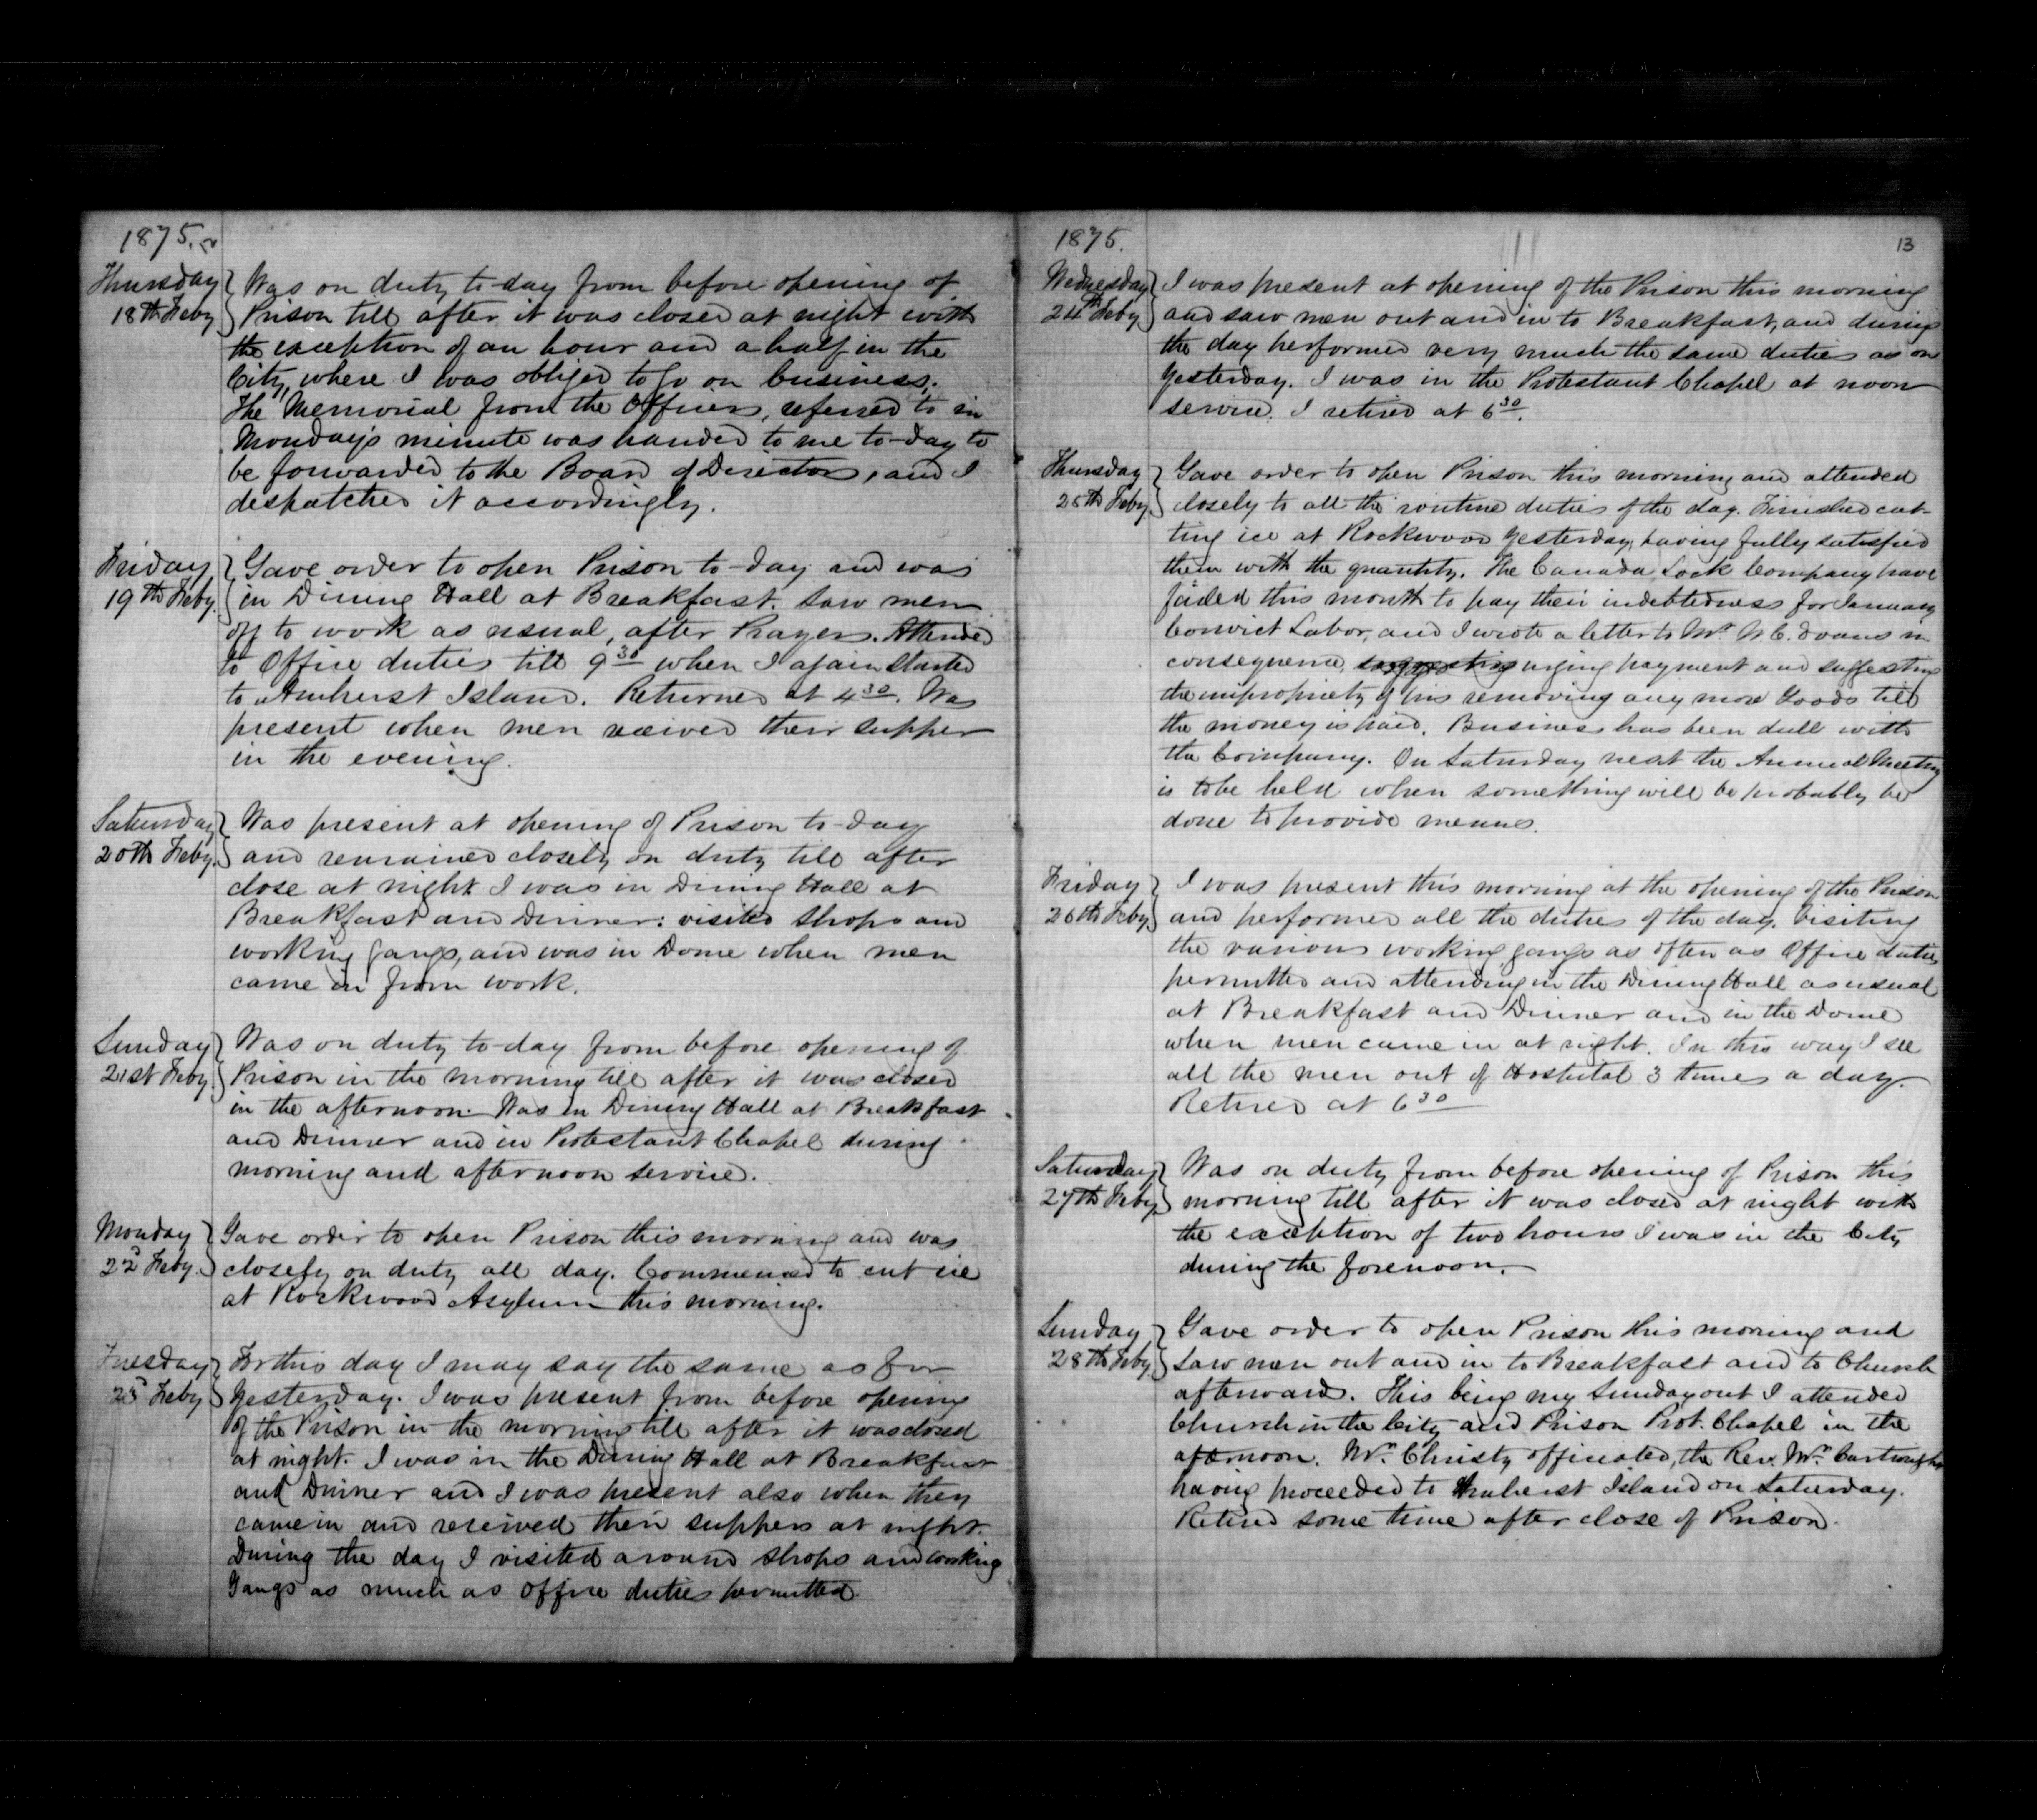 1875.
Thursday
18th Feby
Was on duty to-day from before opening of
Prison till after it was closed at night with
the exception of an hour and a half in the
City, where I was obliged to go on business.
The Memorial from the Officers, referred to in
Monday's minute was handed to me to-day to
be forwarded to the Board of Directors, and I
despatched it accordingly.
Friday
19th Feby.
Gave order to open Prison to-day and was
in Dining Hall at Breakfast. Saw men
off to work as usual, after Prayers. Attended
to Office duties till 9 30 when I again started
to Amherst Island. Returned at 4 30. Was
present when men received their supper
in the evening.
Saturday
20th Feby.
Was present at opening of Prison to-day
and remained closely on duty till after
close at night I was in Dining Hall at
Breakfast and Dinner: visited Shops and
working gangs, and was in Dome when men
came in from work.
Sunday
21st Feby.
Was on duty to-day from before opening of
Prison in the morning till after it was closed
in the afternoon. Was in Dining Hall at Breakfast
and Dinner and in Protestant Chapel during
morning and afternoon service.
Monday
22d Feby.
Gave order to open Prison this morning and was
closely on duty all day. Commenced to cut ice
at Rockwood Asylum this morning.
Tuesday
23d Feby
For this day I may say the same as for
yesterday. I was present from before opening
of the Prison in the morning till after it was closed
at night. I was in the Dining Hall at Breakfast
and Dinner and I was present also when they
came in and received their suppers at night.
During the day I visited around Shops and working
Gangs as much as office duties permitted.
1875.
13
Wednesday
24th Feby
I was present at opening of the Prison this morning
and saw men out and in to Breakfast, and during
the day performed very much the same duties as on
yesterday. I was in the Protestant Chapel at noon
service. I retired at 6 30.
Thursday
25th Feby.
Gave order to open Prison this morning and attended
closely to all the routine duties of the day. Finished cut-
ting ice at Rockwood yesterday, having fully satisfied
them with the quantity. The Canada Lock Company have
failed this month to pay their indebtedness for January
Convict Labor, and I wrote a letter to Mr. N. C. Evans in
consequence, suggesting urging payment and suggesting
the impropriety of his removing any more Goods till
the money is paid. Business has been dull with
the Company. On Saturday next the Annual Meeting
is to be held when something will be probably be
done to provide means.
Friday
26th Feby
I was present this morning at the opening of the Prison
and performed all the duties of the day. Visiting
the various working gangs as often as Office duties
permitted and attending in the Dining Hall as usual
at Breakfast and Dinner and in the Dome
when men came in at night. In this way I see
all the men out of Hospital 3 times a day.
Retired at 6 30
Saturday
27th Feby
Was on duty from before opening of Prison this
morning till after it was closed at night with
the exception of two hours I was in the City
during the forenoon.
Sunday
28th Feby
Gave order to open Prison this morning and
saw men out and in to Breakfast and to Church
afterwards. This being my Sunday out I attended
Church in the City and Prison Prot. Chapel in the
afternoon. Mr. Christy officiated, the Rev. Mr. Cartwright
having proceeded to Amherst Island on Saturday.
Retired some time after close of Prison.